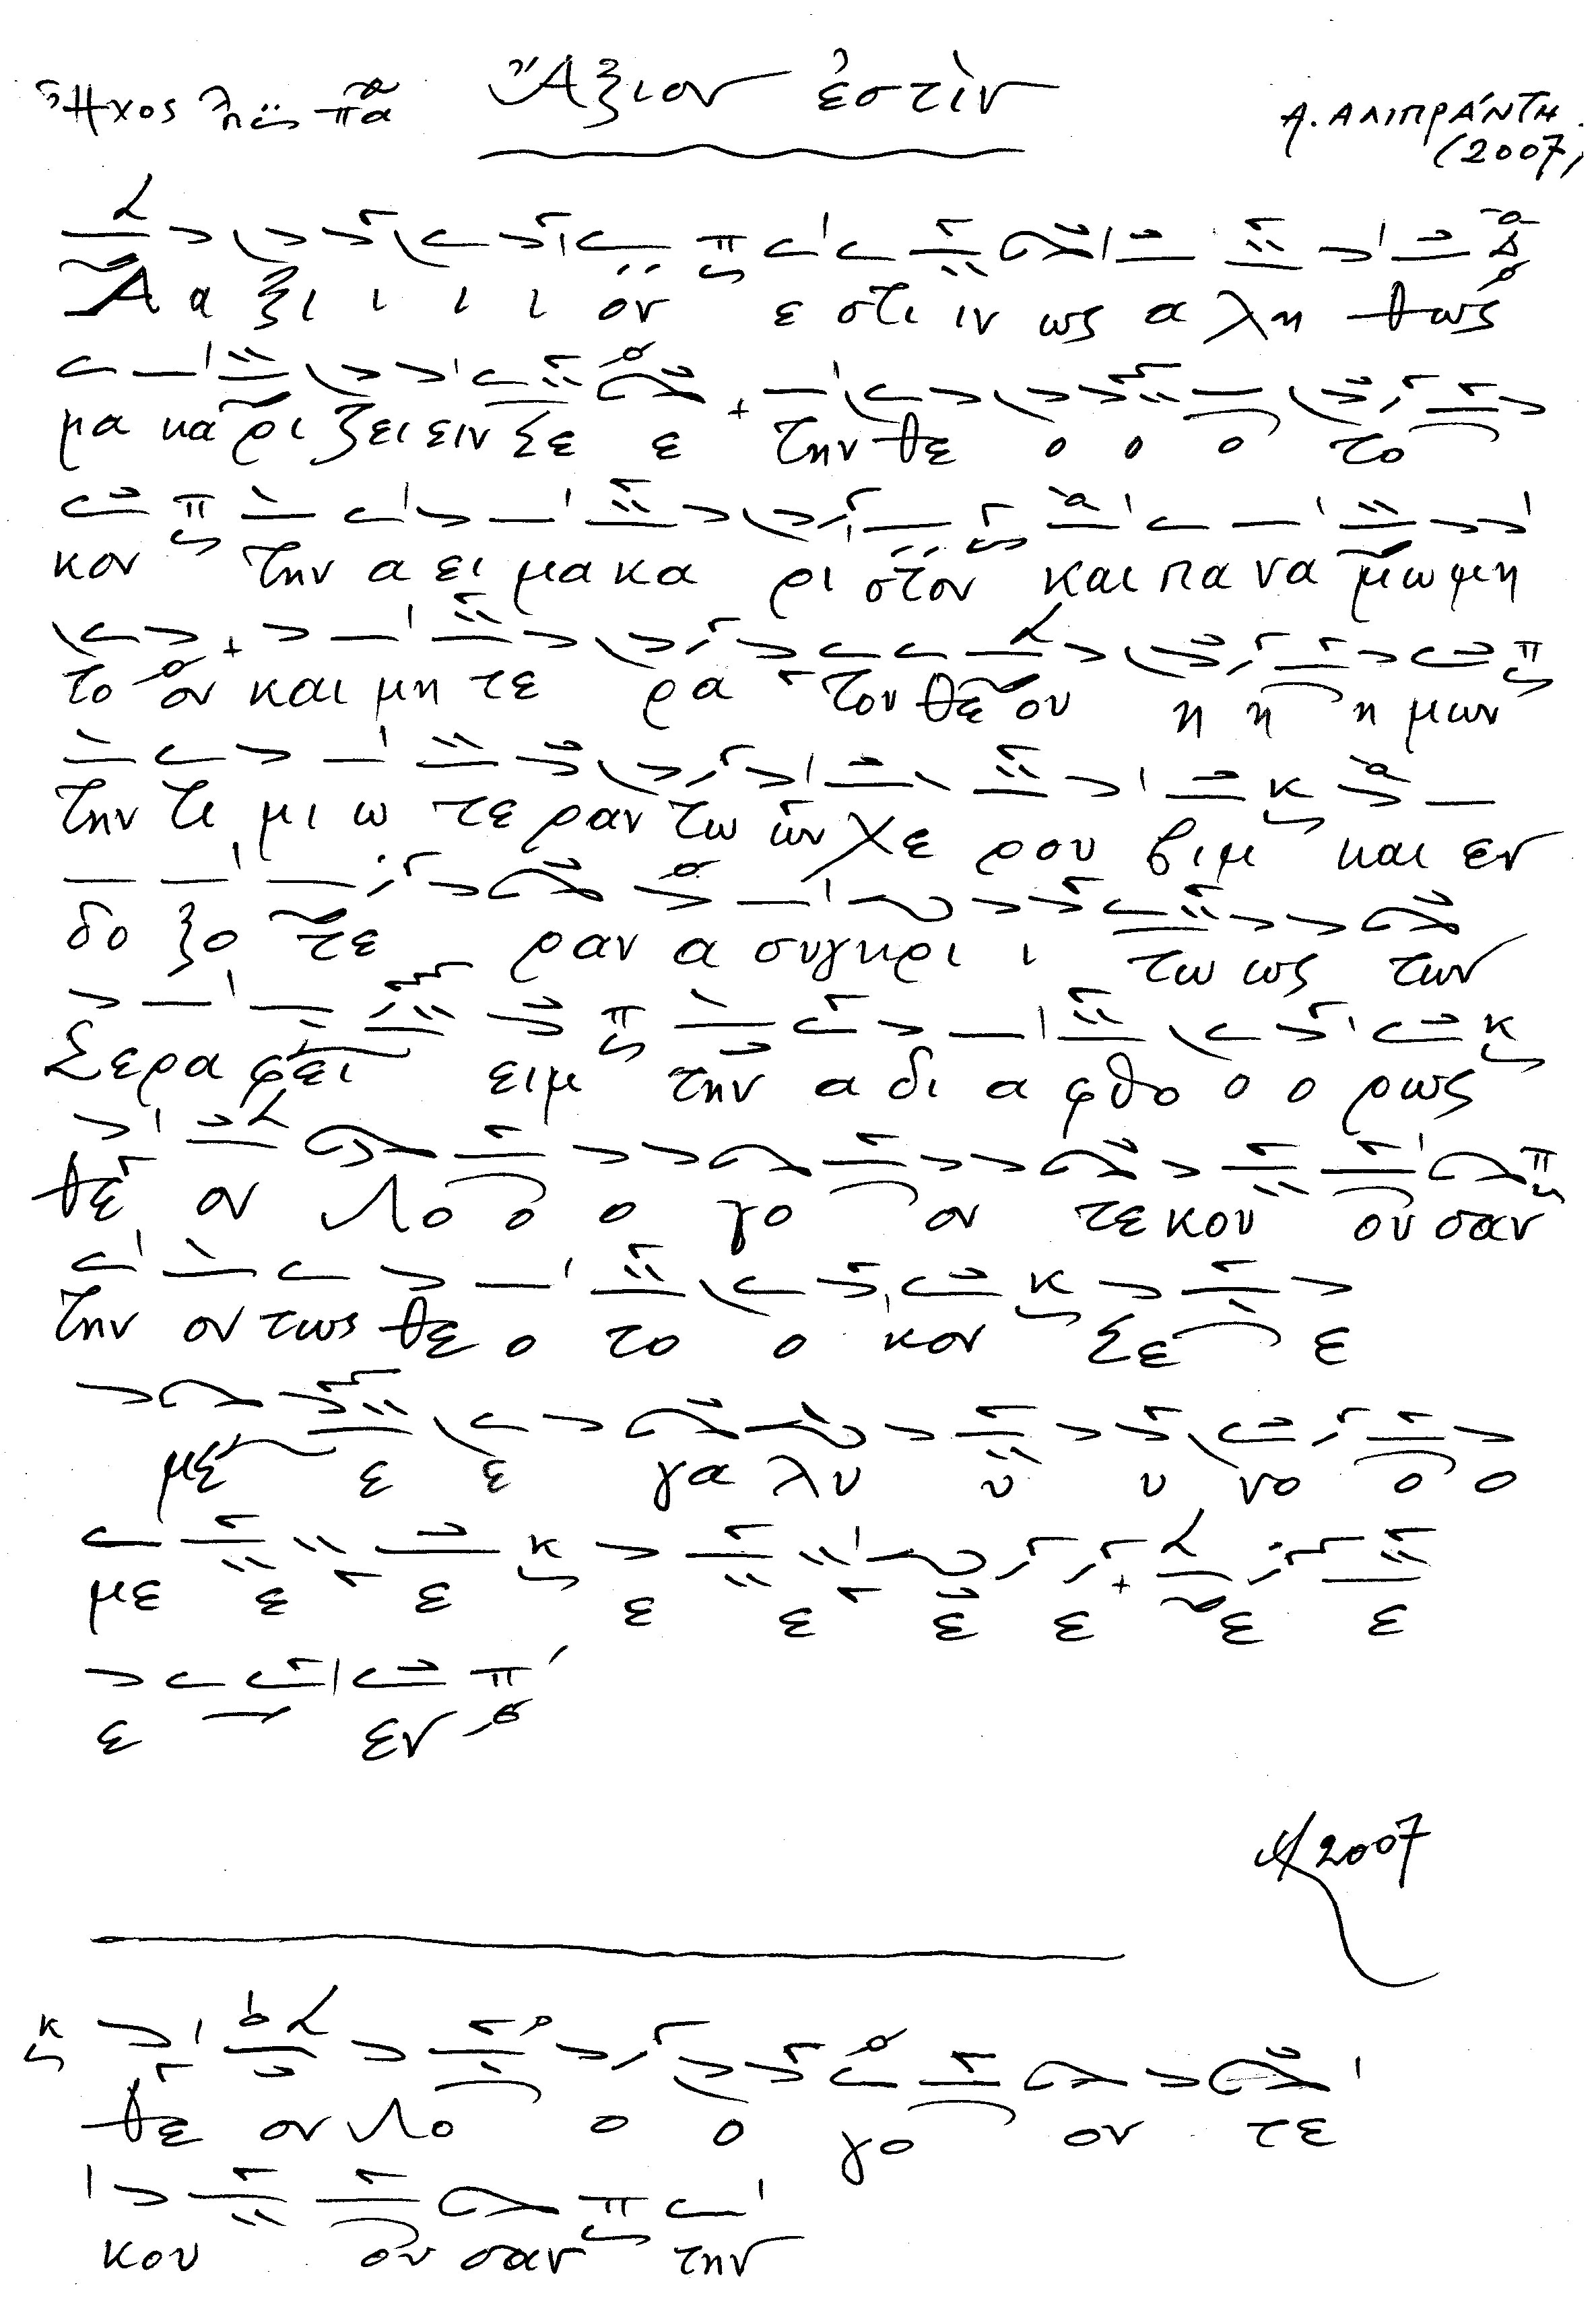 Ἦχος πα Ἄξιον ἐστὶν Α. ΑΛΙΠΡΆΝΤΗ
(2007)
Α α ξι ι ι ι ον ε στι ιν ως α λη θως
μα κα ρι ζει ειν Σε ε την θε ο ο ο το
κον την α ει μα κα ρι στον και πα να μω μη
το ον και μη τε ρα του θε ου η η η μων
την τι μι ω τε ραν τω ων χε ρου βιμ και εν
δο ξο τε ραν α συγκρι ι τω ως των
Σε ρα φει ειμ την α δι α φθο ο ο ρως
θε ον Λο ο ο γο ον τε κου ου σαν
την ον τως θε ο το ο κον Σε ε
με ε ε γα λυ υ υ νο ο ο
με ε ε ε ε ε ε ε ε
ε εν
2007
θε ον Λο ο ο γο ον τε
κου ου σαν την